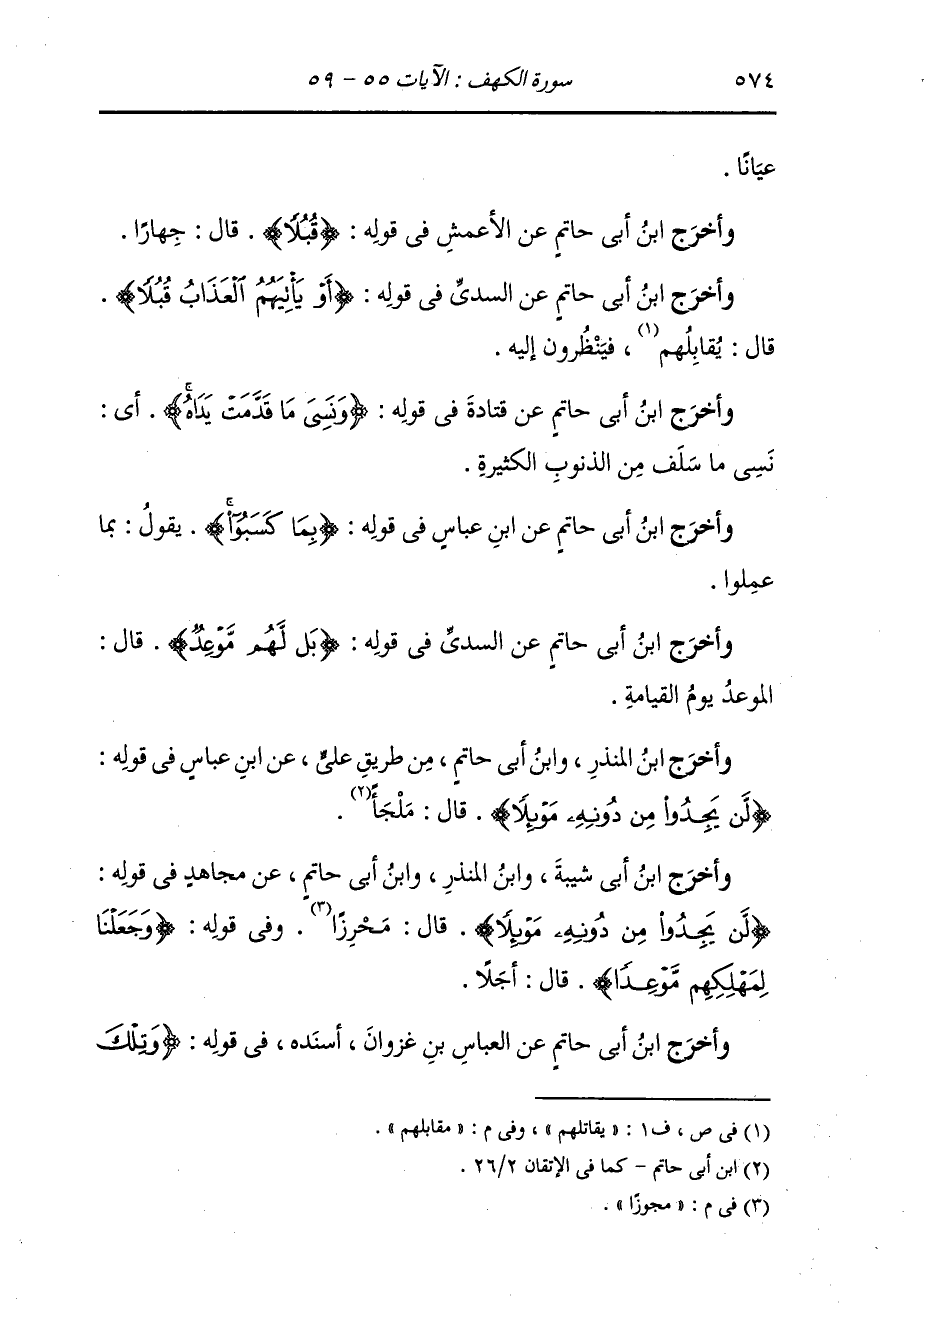 ٥٧٤ سورة الكهف : الآيات ٥٥ - ٥٩
عيَانًا .
وأخرَج ابنُ أبى حاتمٍ عن الأعمشِ فى قولِه : ﴿قُبُلًا﴾ . قال : جِهارًا .
وأخرَج ابنُ أبى حاتمٍ عن السدىِّ فى قولِه : ﴿أَوْ يَأْنِيَهُمُ ٱلْعَذَابُ قُبُلًا﴾ .
قال : يُقابِلُهم(١) ، فيَنْظُرون إليه .
وأخرَج ابنُ أبى حاتمٍ عن قتادةَ فى قولِه : ﴿وَنَسِىَ مَا قَدَّمَتْ يَدَاهُۚ﴾ . أى :
نَسِى ما سَلَف مِن الذنوبِ الكثيرةِ .
وأخرَج ابنُ أبى حاتمٍ عن ابنِ عباسٍ فى قولِه : ﴿بِمَا كَسَبُوٓاْۚ﴾ . يقولُ : بما
عمِلوا .
وأخرَج ابنُ أبى حاتمٍ عن السدىِّ فى قولِه : ﴿بَل لَّهُم مَّوْعِدٌ﴾ . قال :
الموعدُ يومُ القيامةِ .
وأخرَج ابنُ المنذرِ ، وابنُ أبى حاتمٍ ، مِن طريقِ علىٍّ ، عن ابنِ عباسٍ فى قولِه :
﴿لَّن يَجِدُواْ مِن دُونِهِۦ مَوْئِلًا﴾ . قال : مَلْجَأً(٢) .
وأخرَج ابنُ أبى شيبةَ ، وابنُ المنذرِ ، وابنُ أبى حاتمٍ ، عن مجاهدٍ فى قولِه :
﴿لَّن يَجِدُواْ مِن دُونِهِۦ مَوْئِلًا﴾ . قال : مَحْرِزًا(٣) . وفى قولِه : ﴿وَجَعَلْنَا
لِمَهْلِكِهِم مَّوْعِدًا﴾ . قال : أجَلًا .
وأخرَج ابنُ أبى حاتمٍ عن العباسِ بنِ غزوانَ ، أسنَده ، فى قولِه : ﴿وَتِلْكَ
(١) فى ص ، ف١ : « يقاتلهم » ، وفى م : « مقابلهم » .
(٢) ابن أبى حاتم - كما فى الإتقان ٢٦/٢ .
(٣) فى م : « مجوزًا » .